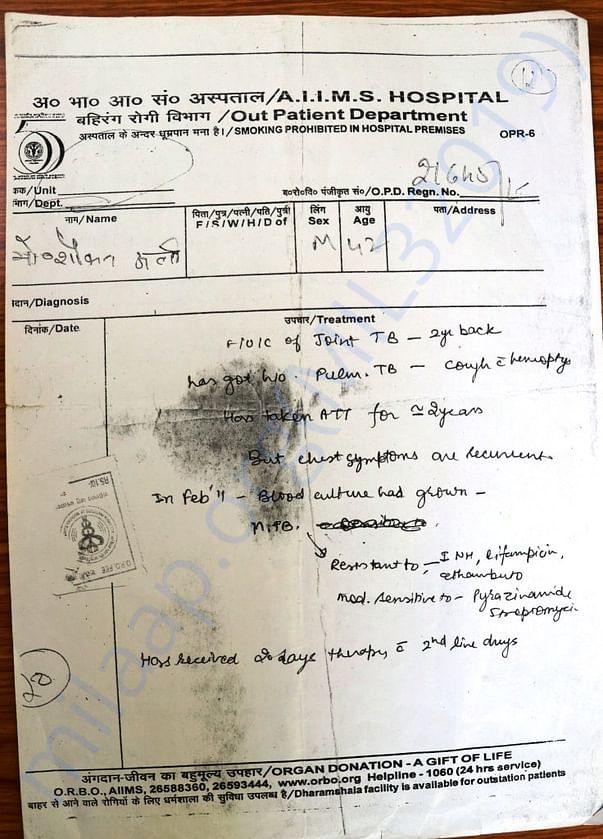 12
अ० भा० आ० सं० अस्पताल/A.I.I.M.S. HOSPITAL
बहिरंग रोगी विभाग /Out Patient Department
अस्पताल के अन्दर धूम्रपान मना है।/SMOKING PROHIBITED IN HOSPITAL PREMISES
OPR-6
एकक/Unit
विभाग/Dept.
ब०रो०वि० पंजीकृत सं०/O.P.D. Regn. No.
नाम/Name
पिता/पुत्र/पत्नी/पति/पुत्री
F/S/W/H/D of
लिंग
Sex
आयु
Age
पता/Address
मो० शौकत अली
M
42
निदान/Diagnosis
दिनांक/Date
उपचार/Treatment
F/U/C of Joint TB - 2yr back
has got h/o Pulm. TB - cough c̄ hemoptys
Has taken ATT for ≃ 2years
But chest symptoms are recurrent
In Feb'11 - Blood culture had grown -
MTB.
Resistant to - INH, Rifampicin,
ethambuto
mod. sensitive to - Pyrazinamide
Streptomyci
Has received 20 days therapy c̄ 2nd line drugs
RS.10/-
O.P.D. FEE
20
अंगदान-जीवन का बहुमूल्य उपहार/ORGAN DONATION - A GIFT OF LIFE
O.R.B.O., AIIMS, 26588360, 26593444, www.orbo.org Helpline - 1060 (24 hrs service)
बाहर से आने वाले रोगियों के लिए धर्मशाला की सुविधा उपलब्ध है/Dharamshala facility is available for outstation patients